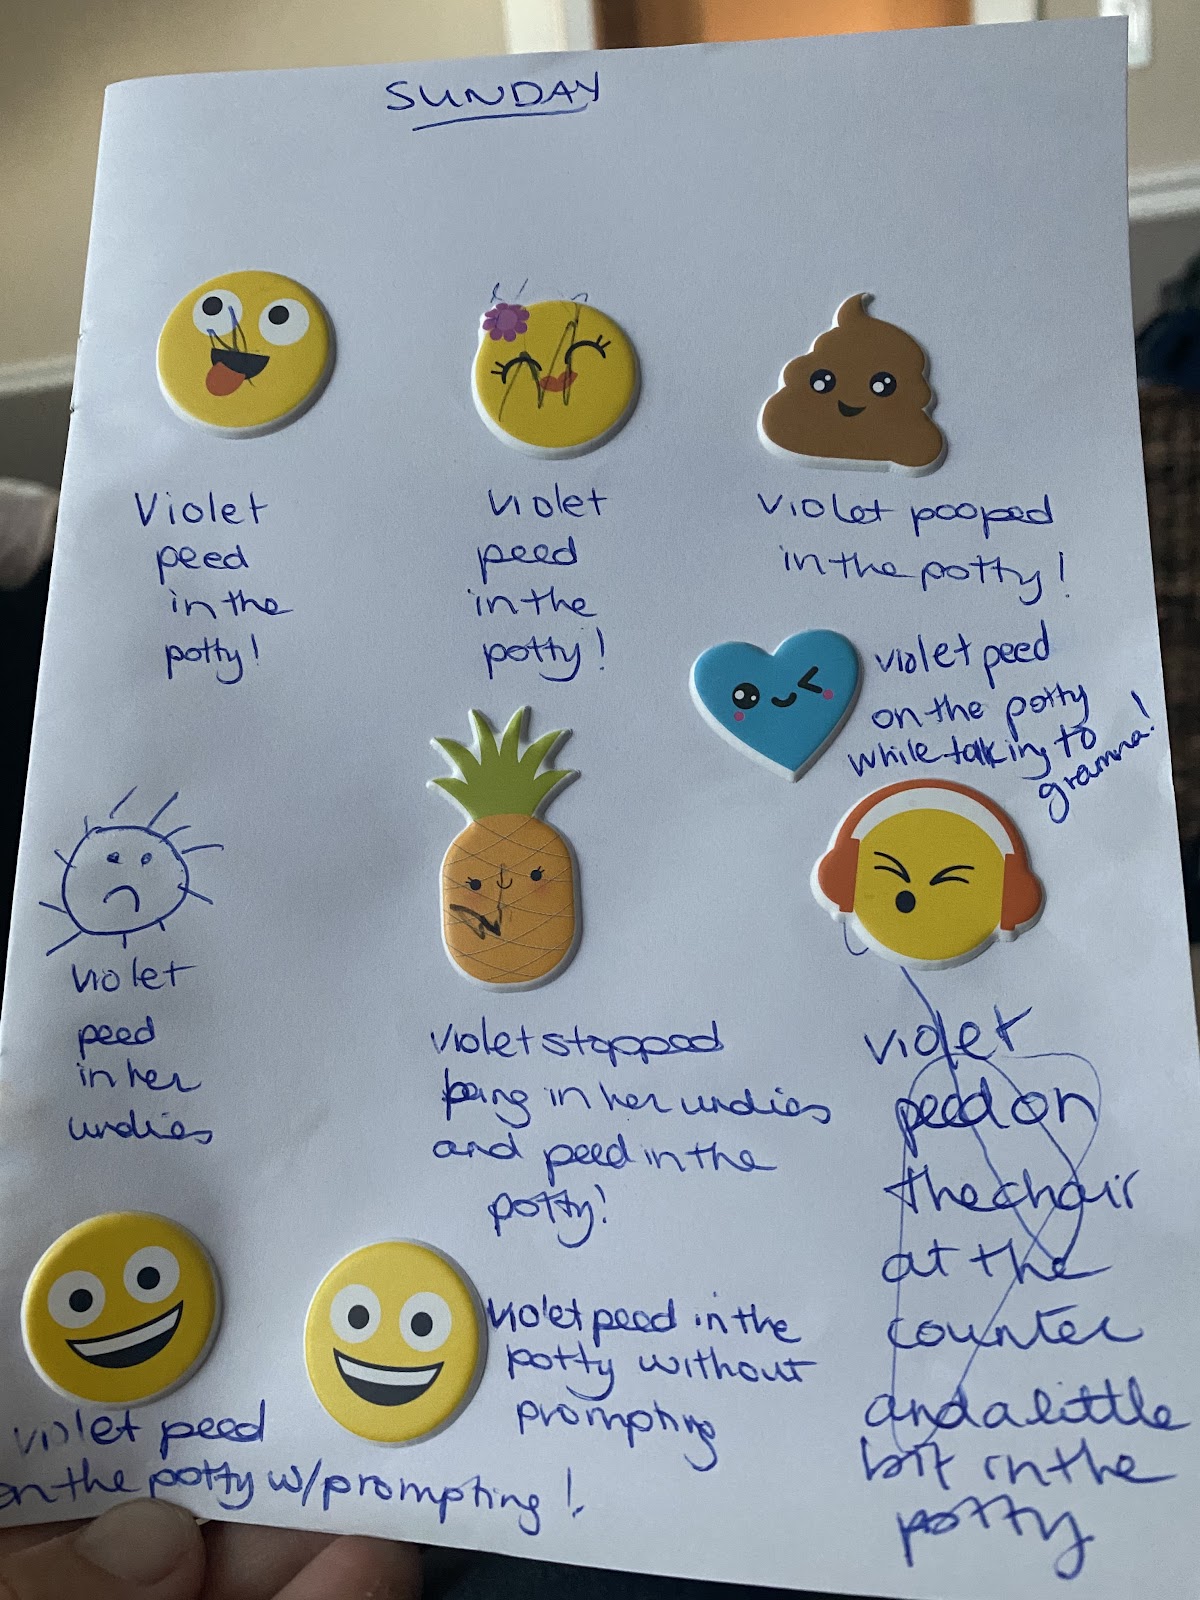 SUNDAY
Violet
peed
in the
potty!
Violet
peed
in the
potty!
Violet pooped
in the potty!
Violet peed
on the potty
while talking to
gramma!
Violet
peed
in her
undies
Violet stopped
peing in her undies
and peed in the
potty!
Violet
peed on
the chair
at the
counter
and a little
bit in the
potty
Violet peed
on the potty w/prompting!
Violet peed in the
potty without
prompting